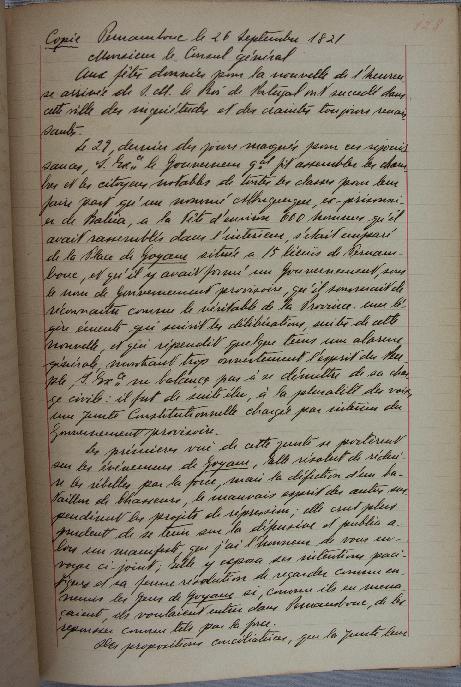 128
Copie Pernambouc le 26 Septembre 1821
Monsieur le Consul général
Aux fêtes données pour la nouvelle de l'heureu
se arrivée de S. M. le Roi de Portugal ont succedé dans
cette ville des inquiétudes et des craintes toujours renais
santes.
Le 29, dernier des jours marqués pour ces réjouis
sances, S. Exca le Gouverneur gal fit assembler les cham
bres et les citoyens notables de toutes les classes pour leur
faire part qu'un nommé ex-prisonni
er de Bahia, a la tête d'environ 600 hommes qu'il
avait rassemblés dans l'interieur, s'était emparé
de la Place de Goyane située a 15 lieues de Pernam-
bouc, et qu'il y avait formé un Gouvernement sous
le nom de Gouvernement provisoire, qu'il
reconnaitre comme le véritable de la Province. une lé
gère émeute qui suivit les délibérations, suites de cette
nouvelle, et qui répandit quelque tems une alarme
générale, montrant trop ouvertement l'esprit du Peu
ple, S. Exca ne balença pas à se démettre de sa char
ge civile: il fut de suite élu, à la pluralité des voix,
une Junte Constitutionnelle chargée par interim du
Gouvernement provisoire.
Les premières vues de cette Junte se portèrent
sur les événemens de Goyane, elle résolut de rédui
re les rébelles par la force, mais la défection d'un ba-
taillon de Chasseurs, le mauvais esprit des autres sus
pendirent les projets de répression; elle crut plus
prudent de se tenir sur la défensive et publia a-
lors un manifeste, que j'ai l'honneur de vous en-
voyer ci-joint; elle y exposa ses intentions paci-
fiques et sa ferme résolution de regarder comme en
nemis les gens de Goyane si, comme ils en mena
çaient, ils voulaient entrer dans Pernambouc, de les
repousser comme tels par la force.
Des propositions conciliatrices, que la Junte leur